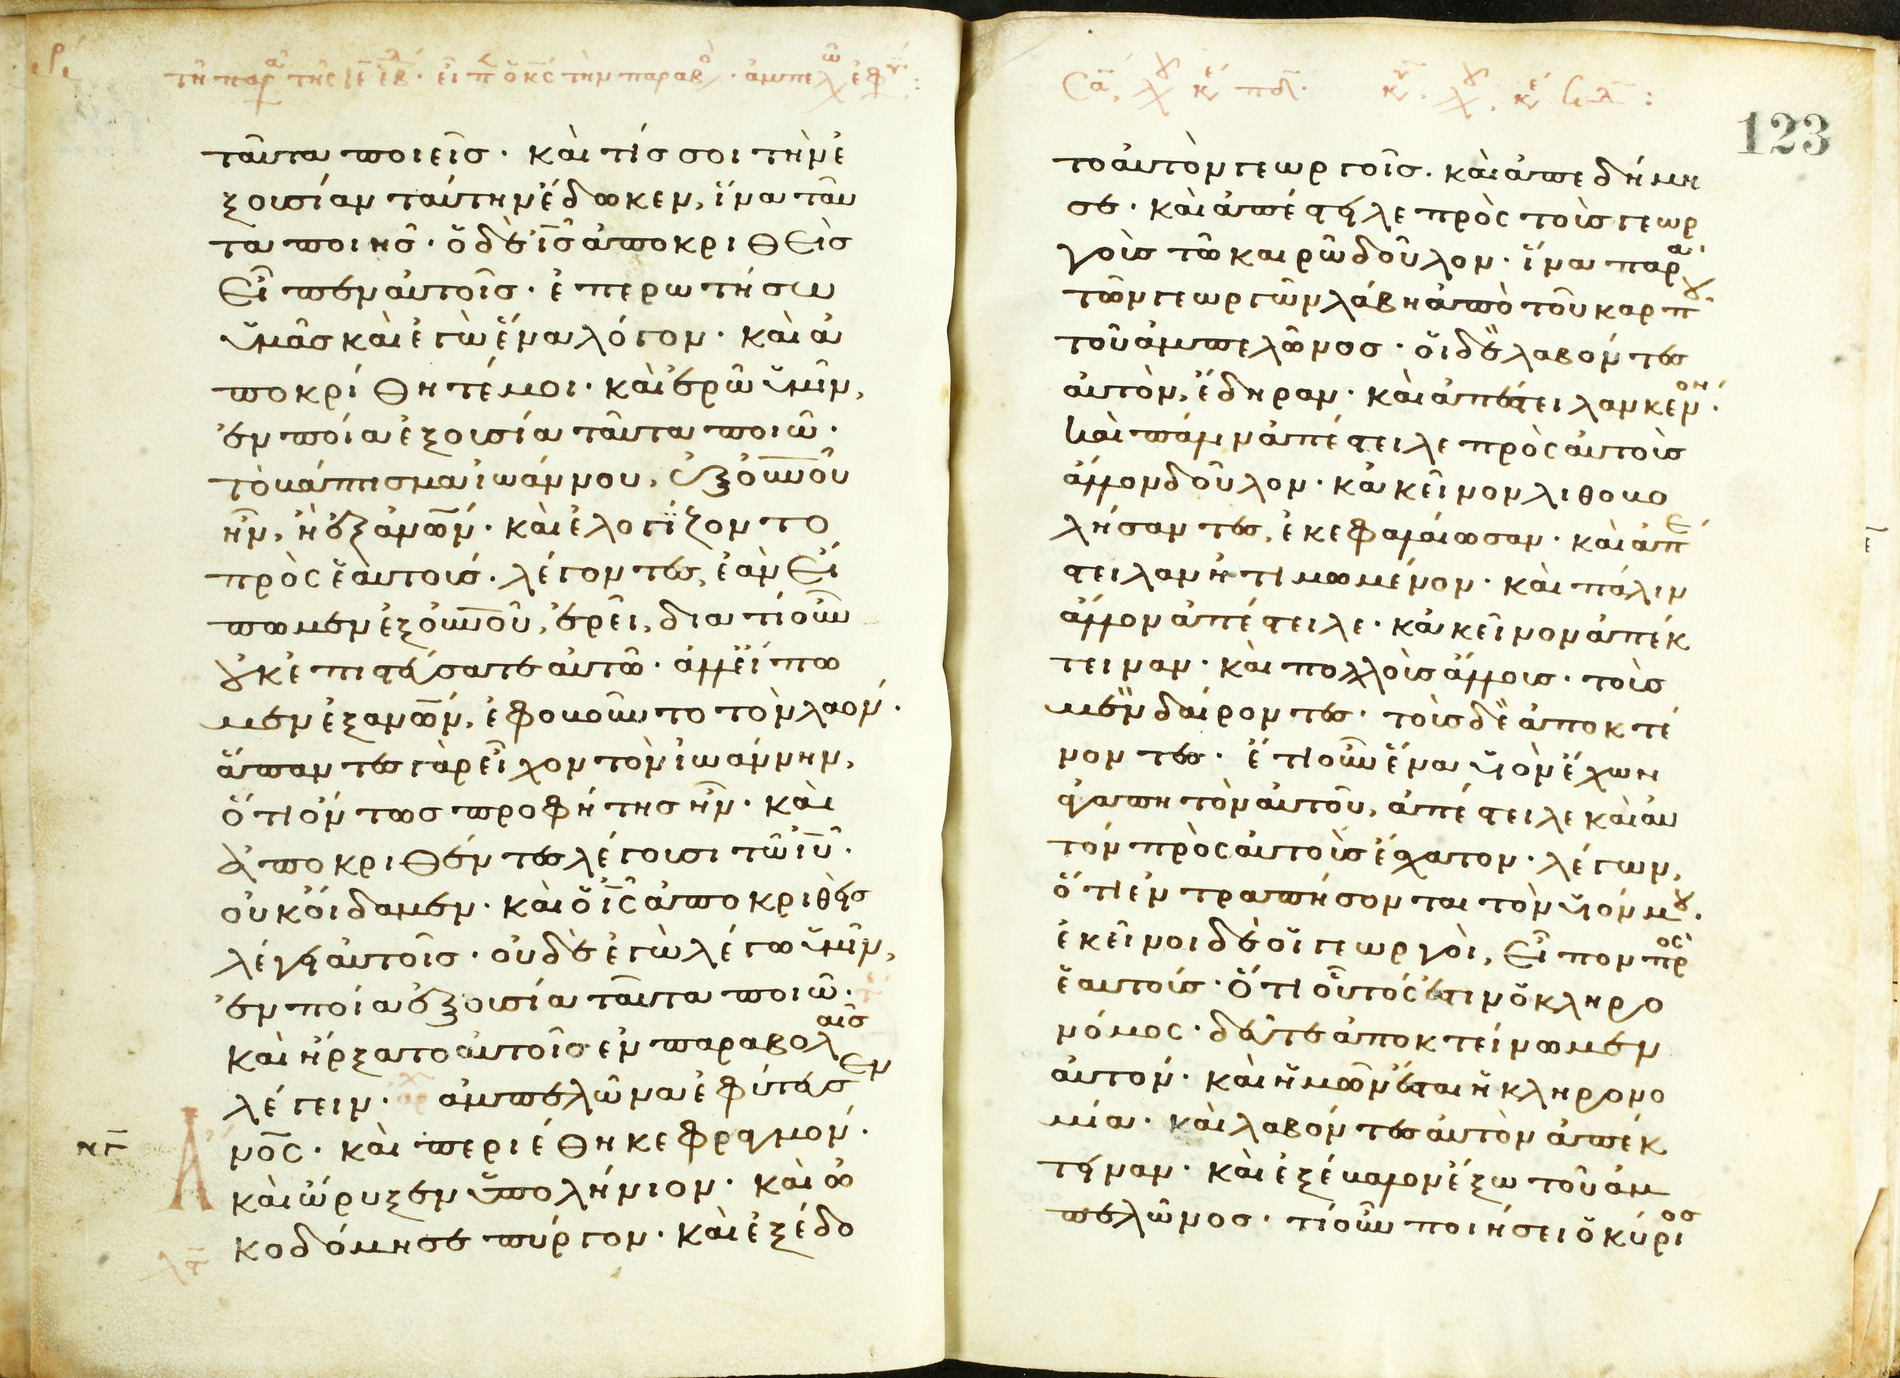 τῆ παρ τῆς ιε εβ. εἶπ ὁ κς τὴν παραβ. ἀμπελ ἐφ :
ταῦτα ποιεῖσ· καὶ τίσ σοι τὴν ἐ
ξουσίαν ταύτην ἔδωκεν, ἵνα ταῦ
τα ποιῆσ· ὁ δὲ ισ ἀποκριθεὶσ
εἶπεν αὐτοῖσ· ἐπερωτήσω
ὑμᾶσ καὶ ἐγὼ ἕνα λόγον· καὶ ἀ
ποκρίθητέ μοι· καὶ ἐρῶ ὑμῖν,
ἐν ποία ἐξουσία ταῦτα ποιῶ·
τὸ βάπτισμα ἰωάννου, ἐξ ουνου
ἦν, ἢ ἐξ ανων· καὶ ἐλογίζοντο
πρὸς ἑαυτούσ· λέγοντεσ, ἐὰν εἴ
πωμεν ἐξ ουνου, ἐρεῖ, διατί οὖν
οὐκ ἐπιστεύσατε αὐτῶ· ἀλλ εἴπω
μεν ἐξ ανων, ἐφοβοῦντο τὸν λαόν·
ἅπαντεσ γὰρ εἶχον τὸν ἰωάννην,
ὅτι ὄντωσ προφήτησ ἦν· καὶ
ἀποκριθέντεσ λέγουσι τῶ ιυ·
οὐκ οἴδαμεν· καὶ ὁ ισ ἀποκριθεὶσ
λέγει αὐτοῖσ· οὐδὲ ἐγὼ λέγω ὑμῖν,
ἐν ποία ἐξουσία ταῦτα ποιῶ·
καὶ ἤρξατο αὐτοῖσ ἐν παραβολαῖσ
λέγειν· ἀμπελῶνα ἐφύτευσεν
ανος· καὶ περιέθηκε φραγμόν·
καὶ ὤρυξεν ὑπολήνιον· καὶ ὠ
κοδόμησε πύργον· καὶ ἐξέδο
123
το αὐτὸν γεωργοῖσ. καὶ ἀπεδήμη
σε· καὶ ἀπέστειλε πρὸς τοὺσ γεωρ
γοὺσ τῶ καιρῶ δοῦλον· ἵνα παρὰ
τῶν γεωργῶν λάβη ἀπὸ τοῦ καρποῦ
τοῦ ἀμπελῶνοσ· οἱ δὲ λαβόντεσ
αὐτὸν, ἔδηραν· καὶ ἀπέστειλαν κενόν·
καὶ πάλιν ἀπέστειλε πρὸς αὐτοὺσ
ἄλλον δοῦλον· κἀκεῖνον λιθοβο
λήσαντεσ, ἐκεφαλαίωσαν· καὶ ἀπέ
στειλαν ἠτιμωμένον· καὶ πάλιν
ἄλλον ἀπέστειλε· κἀκεῖνον ἀπέκ
τειναν· καὶ πολλοὺσ ἄλλουσ· τοὺσ
μὲν δαίροντεσ· τοὺσ δὲ ἀποκτέ
νοντεσ· ἔτι οὖν ἕνα υἱὸν ἔχων
ἀγαπητὸν αὐτοῦ, ἀπέστειλε καὶ αὐ
τόν πρὸς αὐτοὺσ ἔσχατον· λέγων,
ὅτι ἐντραπήσονται τὸν υἱόν μου·
ἐκεῖνοι δὲ οἱ γεωργοὶ, εἶπον πρὸς
ἑαυτούσ· ὅτι οὗτός ἐστιν ὁ κληρο
νόμος· δεῦτε ἀποκτείνωμεν
αὐτόν· καὶ ἡμῶν ἔσται ἡ κληρονο
μία· καὶ λαβόντεσ αὐτὸν ἀπέκ
τειναν· καὶ ἐξέβαλον ἔξω τοῦ ἀμ
πελῶνοσ· τί οὖν ποιήσει ὁ κύριοσ